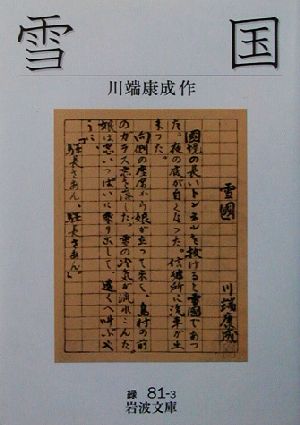 雪国
川端康成作
雪國
川端康成
國境の長いトンネルを抜けると雪國であつ
た。夜の底が白くなつた。信號所に汽車が止
まつた。
向側の座席から娘が立つて来て、島村の前
のガラス窓を落した。雪の冷気が流れこんだ。
娘は窓いつぱいに乗り出して、遠くへ叫ぶや
うに、
「駅長さあん、駅長さあん」
緑 81-3
岩波文庫